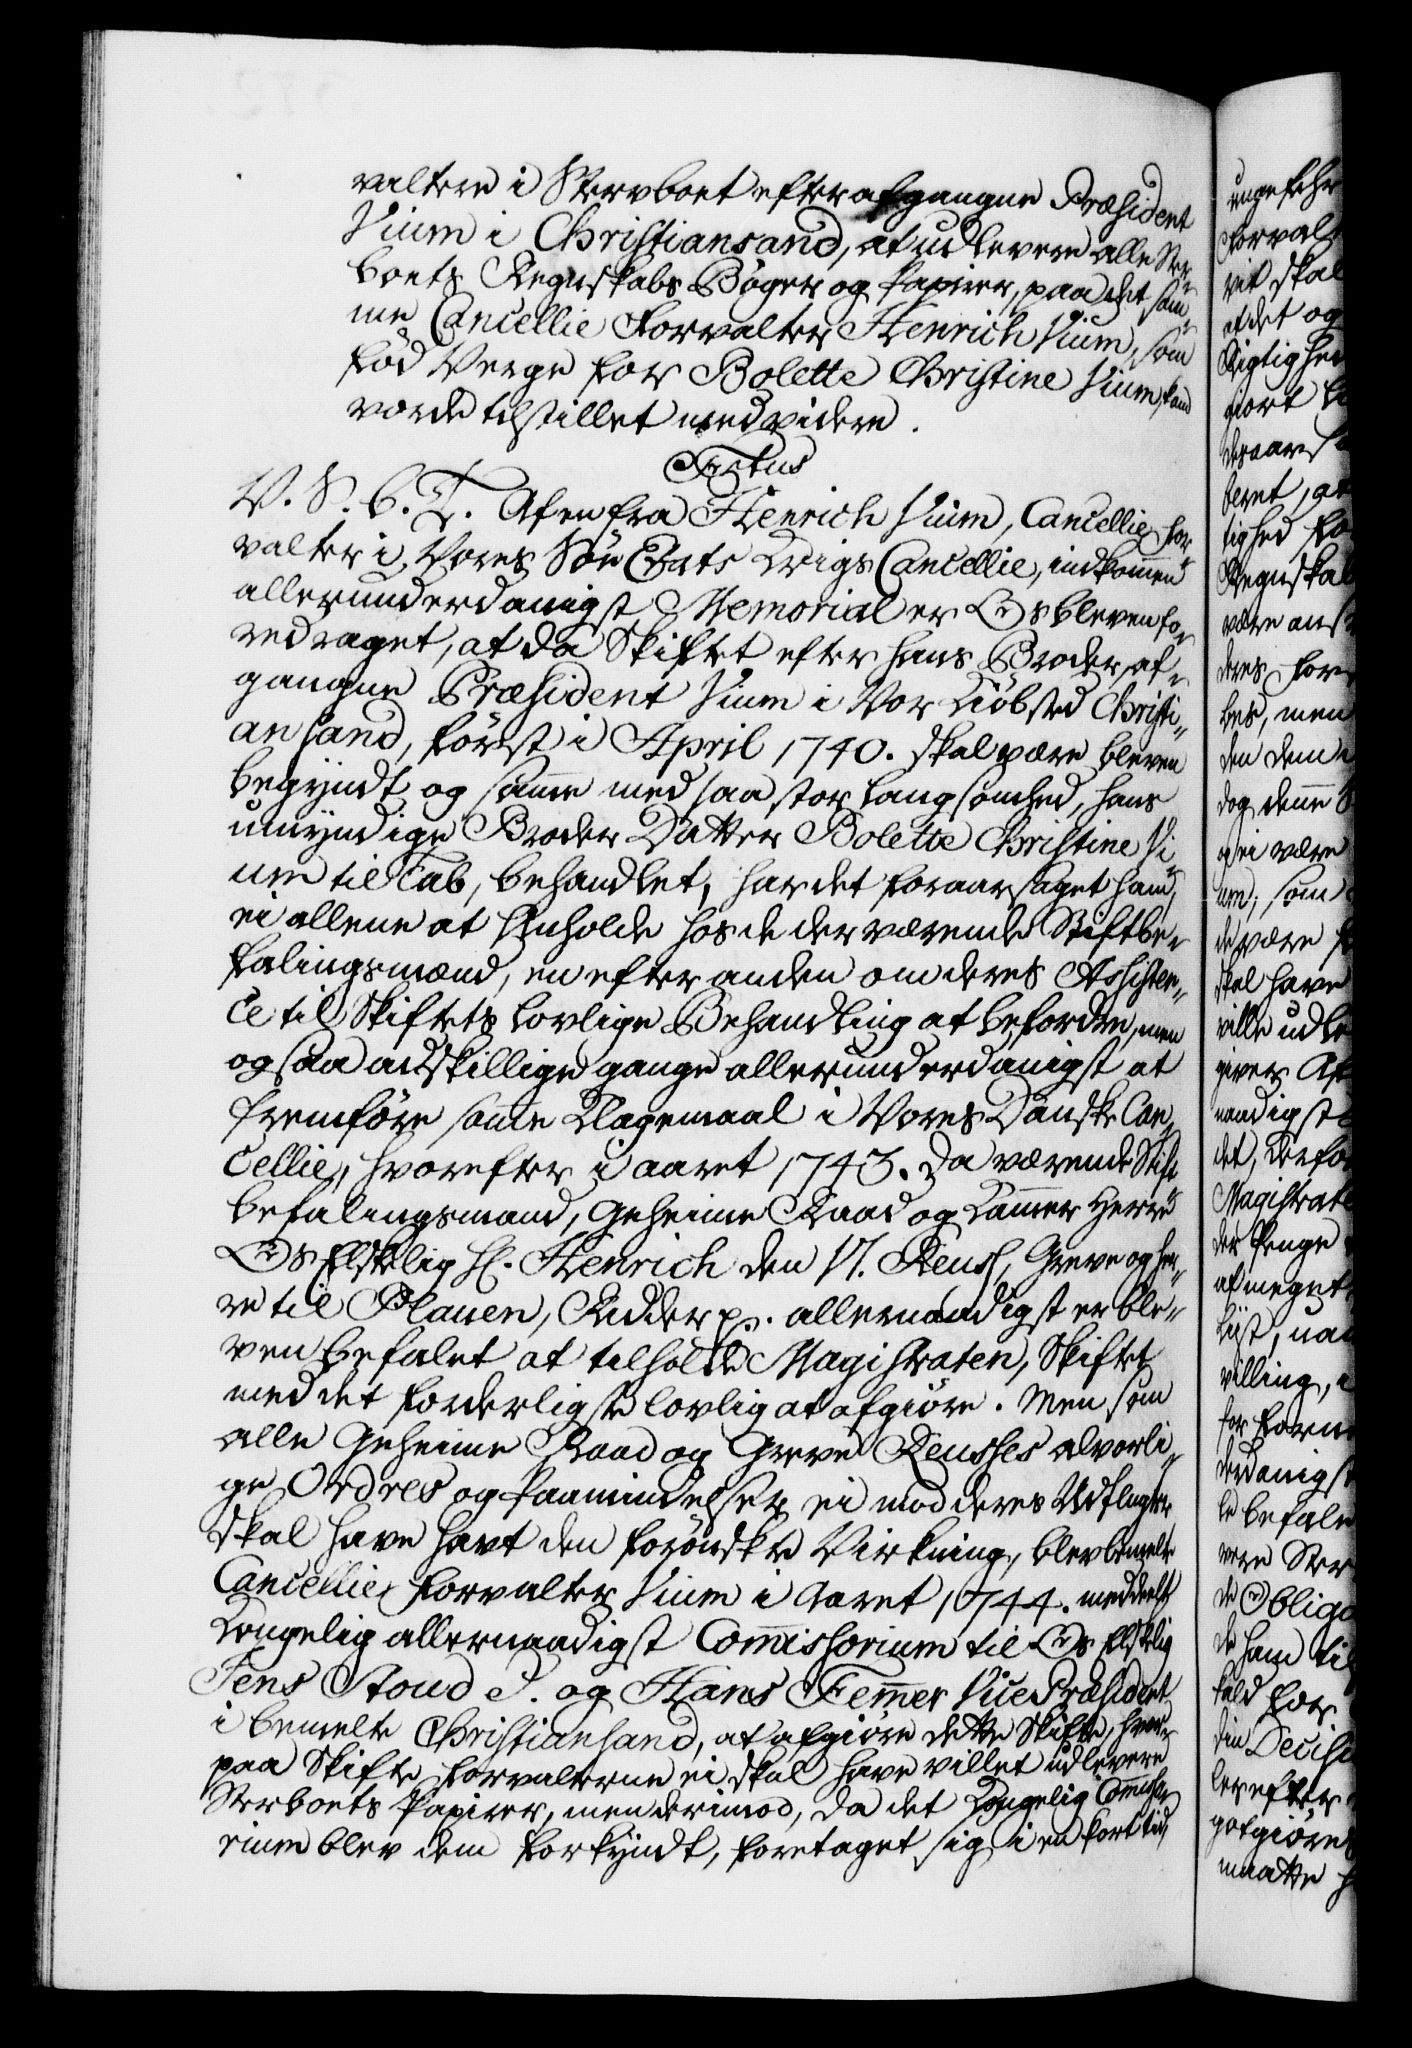 valtere i Sterboet efter afgangne Præsident
Vium i Christiansand, at udlevere alle Ster-
boets Regnskabs Bøger og Papirer, paa det sam-
me Cancellie Forvalter Henrich Vium, som
fød Verge for Bolette Christine Vium, kand
vorde tilstillet med videre.
Fr5tus
V. S. G. T. At en fra Henrich Vium, Cancellie For-
valter i Vores Søe Etats Krigs Cancellie, indkommen
allerunderdanigst Memorial er Os bleven fo-
redraget, at da Skiftet efter hans Broder, af-
gangne Præsident Vium i Vor Kiøbsted Christi-
ansand, først i April 1740. skal være bleven
begyndt og samme med saa stor langsomhed, hans
umyndige Broder Datter Bolette Christine Vi-
um til Tab, behandlet, har det foraarsaget ham,
ei allene at Anholde hos de derværende Stiftbe-
falingsmænd, en efter anden om deres Assisten-
ce til Skiftets lovlige Behandling at befordre, men
og saa adskillige gange allerunderdanigst at
fremføre samme Klagemaal i Vores Danske Can-
cellie, hvorefter i aaret 1743. da værende Stift
befalingsmand, Geheime Raad og Kammer Herre
Os Elskelig Hr. Henrich den VI. Reuss, Greve og Her-
re til Plauen, Ridder p. allernaadigst er ble-
ven befalet at tilholde Magistraten, Skiftet
med det forderligste lovlig at afgiøre. Men som
alle Geheime Raad og Greve Reusses alvorli-
ge Ordres og Paamindelser ei mod deres Udflugter
skal have havt den forønskte Virkning, blev bemelte
Cancellie Forvalter Vium i Aaret 1744. meddeelt
Kongelig allernaadigst Commissorium til Os Elskelig
Jens Stoud S. og Hans Femmer Vice Præsident
i bemelte Christiansand, at afgiøre dette Skifte, hvor-
paa Skifte Forvalterne ei skal have villet udlevere
Sterboets Papirer, men derimod, da det Kongelig Commisso-
rium blev dem forkyndt, foretaget sig i en kort tid,